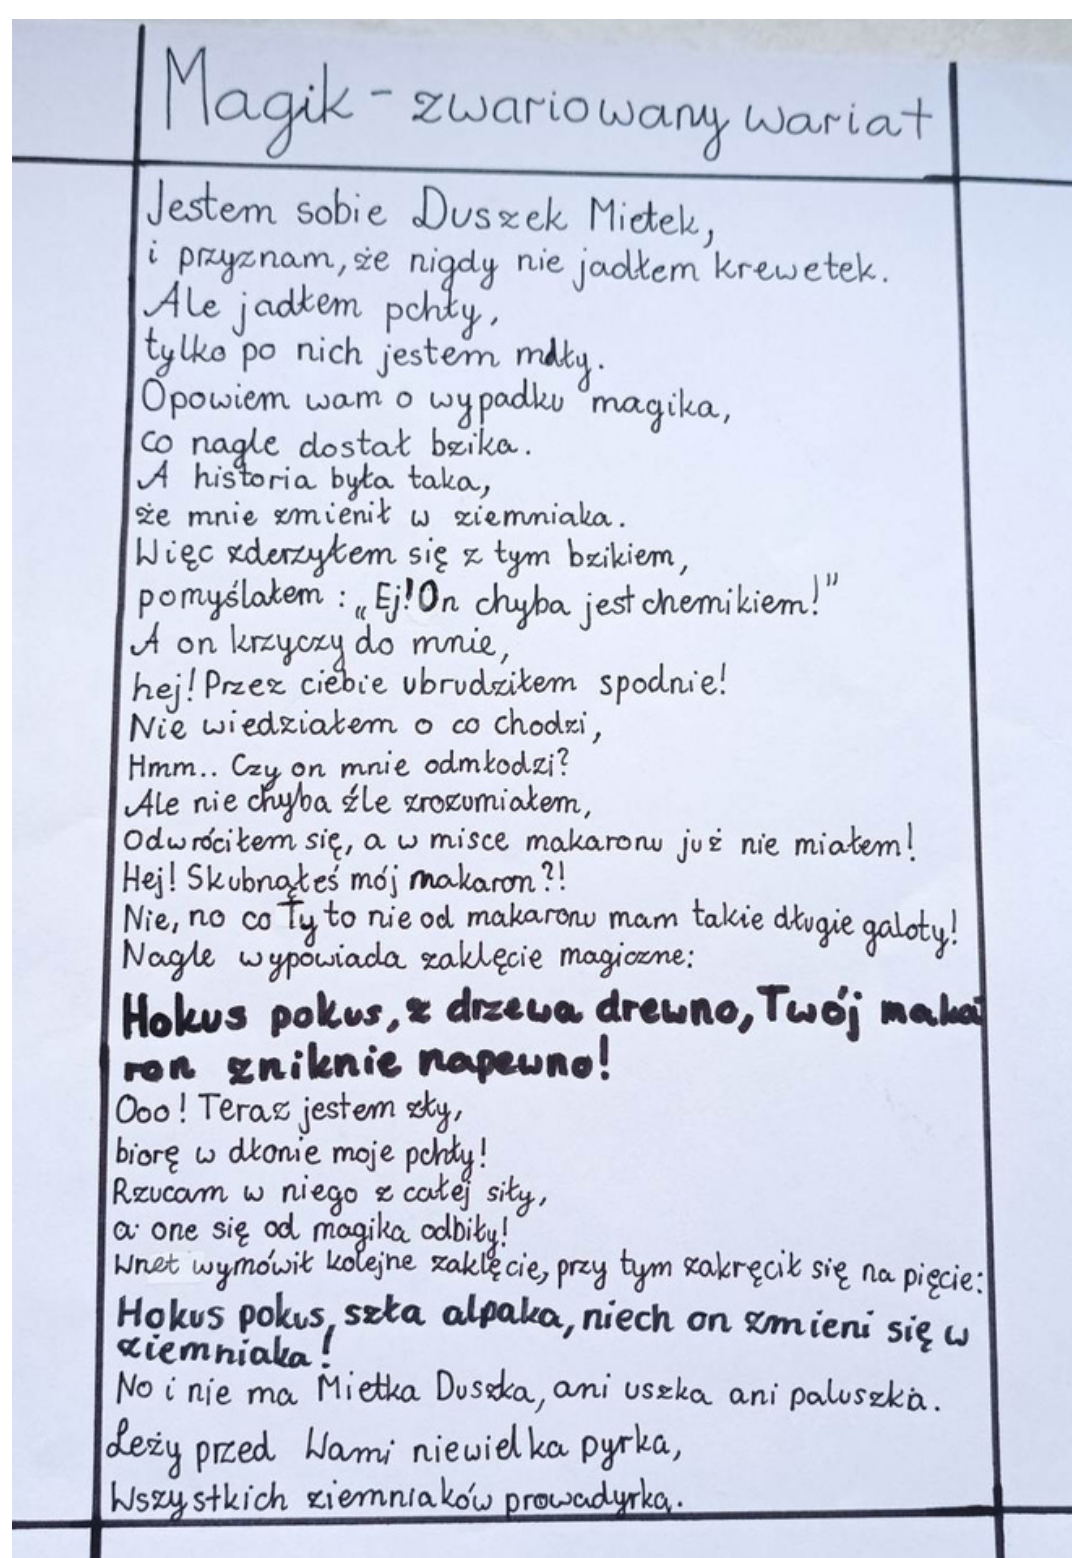 Magik - zwariowany wariat
Jestem sobie Duszek Mietek,
i przyznam, że nigdy nie jadłem krewetek.
Ale jadłem pchły,
tylko po nich jestem mdły.
Opowiem wam o wypadku magika,
co nagle dostał bzika.
A historia była taka,
że mnie zmienił w ziemniaka.
Więc zderzyłem się z tym bzikiem,
pomyślałem : „Ej! On chyba jest chemikiem!”
A on krzyczy do mnie,
hej! Przez ciebie ubrudziłem spodnie!
Nie wiedziałem o co chodzi,
Hmm.. Czy on mnie odmłodzi?
Ale nie chyba źle zrozumiałem,
Odwróciłem się, a w misce makaronu już nie miałem!
Hej! Skubnąłeś mój makaron?!
Nie, no co Ty to nie od makaronu mam takie długie galoty!
Nagle wypowiada zaklęcie magiczne:
Hokus pokus, z drzewa drewno, Twój maka
ron zniknie napewno!
Ooo! Teraz jestem zły,
biorę w dłonie moje pchły!
Rzucam w niego z całej siły,
a one się od magika odbiły!
Wnet wymówił kolejne zaklęcie, przy tym zakręcił się na pięcie:
Hokus pokus, szła alpaka, niech on zmieni się w
ziemniaka!
No i nie ma Mietka Duszka, ani uszka ani paluszka.
Leży przed Wami niewielka pyrka,
Wszystkich ziemniaków prowadyrka.